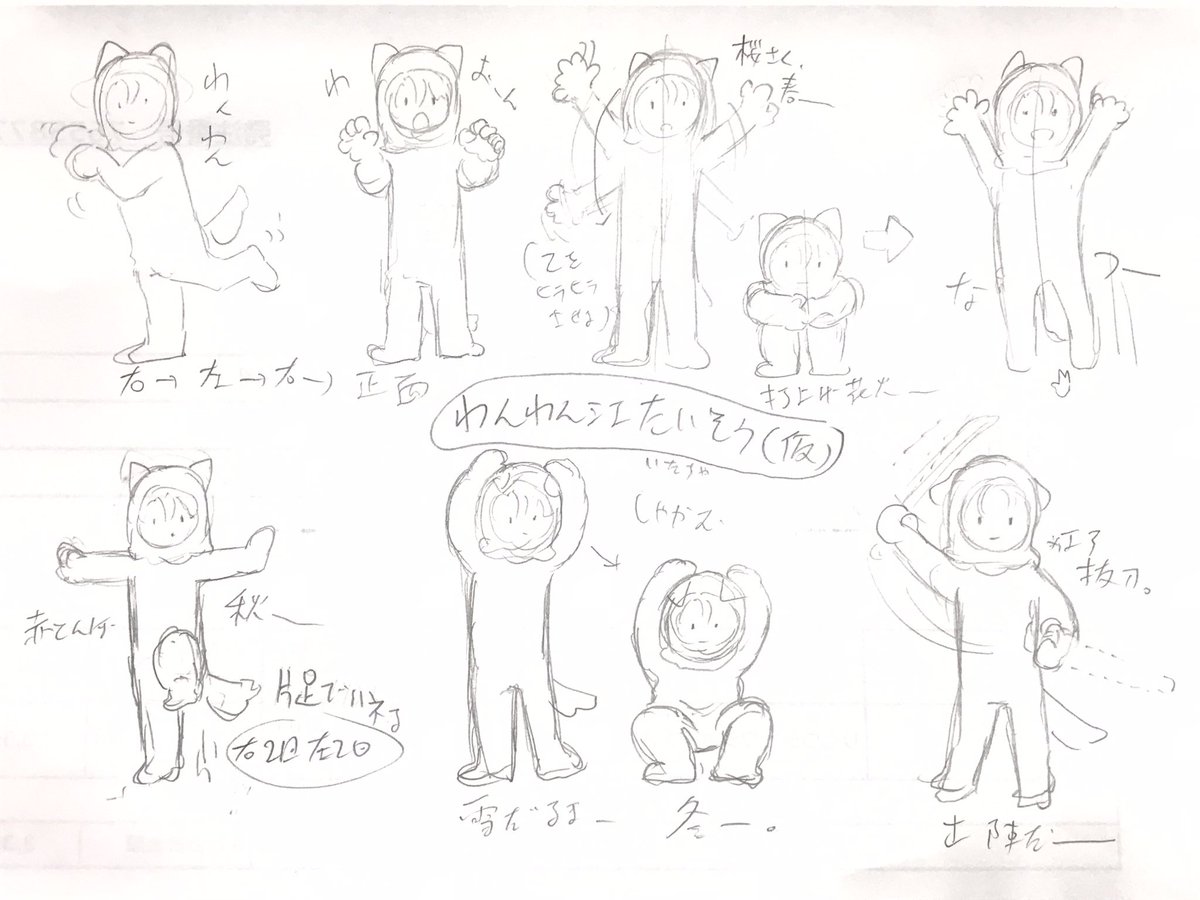 わんわん
わ
おーん
桜さく、
春ー
(てを
ヒラヒラ
させる)
打上げ花火ー
な
つー
右→左→右→正面
わんわん江たいそう(仮)
赤てんぼ
秋ー
片足でハネる
右2回左2回
しゃがむ
雪だるまー
冬ー。
抜刀。
出陣だー